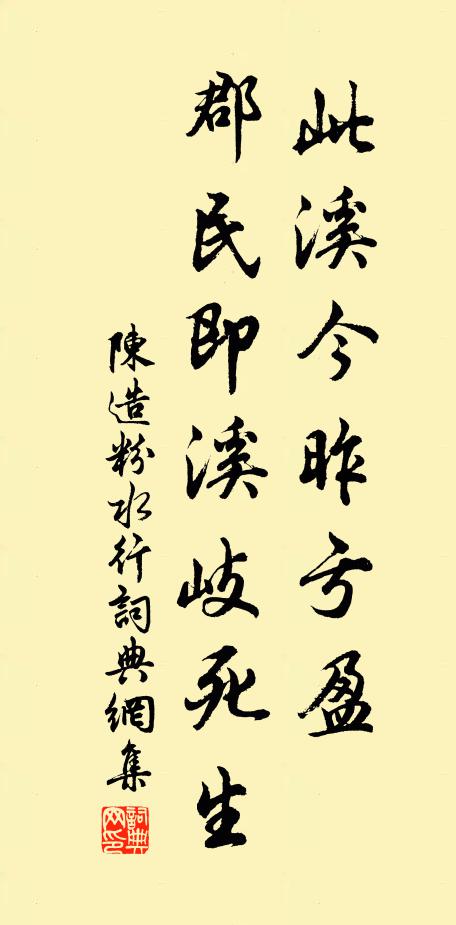 此溪今昨亏盈
郡民即溪岐死生
陳造粉水行詞典網集
詞典网印